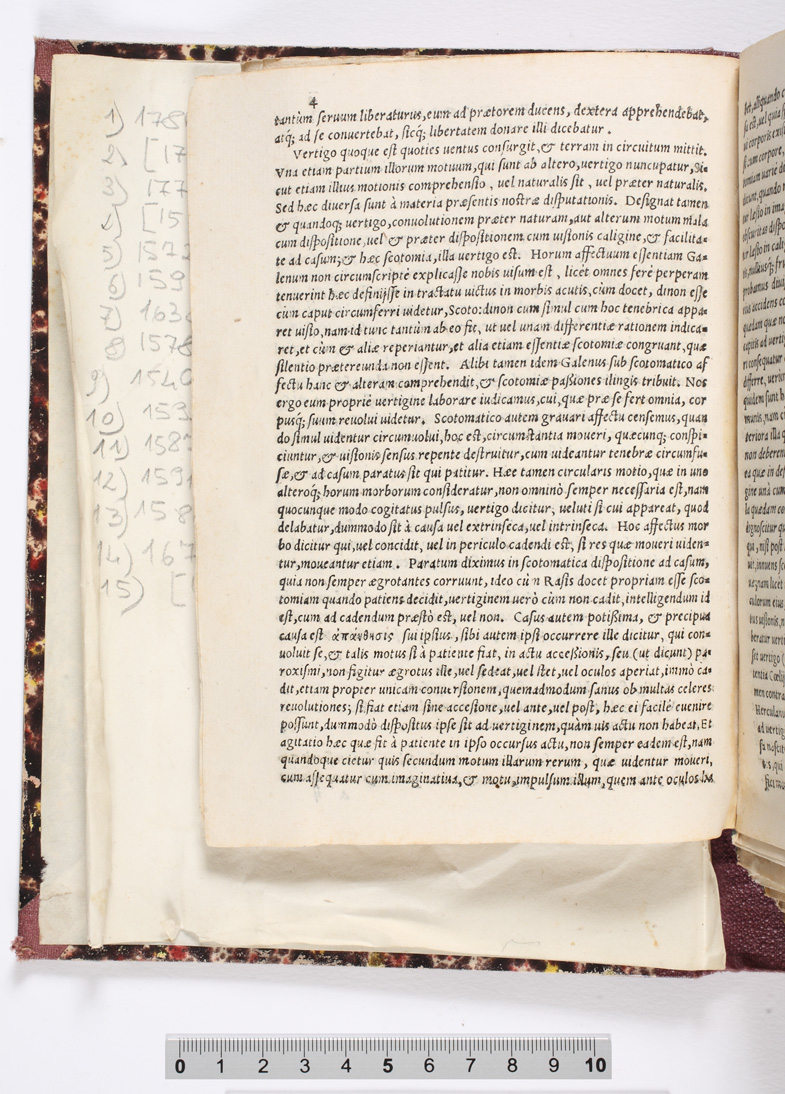 4
tantùm ſeruum liberaturus, eum ad prætorem ducens, dextera apprehendebat,
atq́; ad ſe conuertebat, ſicq́; libertatem donare illi dicebatur.
Vertigo quoque eſt quoties uentus conſurgit, & terram in circuitum mittit.
Vna etiam partium illorum motuum, qui ſunt ab altero, uertigo nuncupatur, Si-
cut etiam illius motionis comprehenſio, uel naturalis ſit, uel præter naturalis.
Sed hæc diuerſa ſunt à materia præſentis noſtræ diſputationis. Deſignat tamen
& quandoq; uertigo, conuolutionem præter naturam, aut alterum motum mala
cum diſpoſitione, uel & præter diſpoſitionem cum uiſionis caligine, & facilita-
te ad caſum; & hæc ſcotomia, illa uertigo eſt. Horum affectuum eſſentiam Ga-
lenum non circumſcriptè explicaſſe nobis uiſum eſt, licèt omnes ferè perperam
tenuerint hæc definijſſe in tractatu uictus in morbis acutis, cùm docet, dinon eſſe
cùm caput circumferri uidetur, Scoto: dinon cum ſimul cum hoc tenebrica appa-
ret uiſio, nam id tunc tantùm ab eo fit, ut uel unam differentiæ rationem indica-
ret, et cùm & aliæ reperiantur, et alia etiam eſſentiæ ſcotomiæ congruant, quæ
ſilentio prætereunda non eſſent. Alibi tamen idem Galenus ſub ſcotomatico af
fectu hanc & alteram comprehendit, & ſcotomiæ paſsiones ilingis tribuit. Nos
ergo eum propriè uertigine laborare iudicamus, cui, quæ præ ſe fert omnia, cor
pusq́; ſuum reuolui uidetur. Scotomatico autem grauari affectu cenſemus, quan
do ſimul uidentur circumuolui, hoc eſt, circumſtantia moueri, quæcunq; conſpi-
ciuntur, & uiſionis ſenſus repente deſtruitur, cum uideantur tenebræ circumfu-
ſæ, & ad caſum paratus ſit qui patitur. Hæc tamen circularis motio, quæ in uno
alteroq́; horum morborum conſideratur, non omninò ſemper neceſſaria eſt, nam
quocunque modo cogitatus pulſus, uertigo dicitur, ueluti ſi cui appareat, quod
delabatur, dummodo ſit à cauſa uel extrinſeca, uel intrinſeca. Hoc affectus mor
bo dicitur qui, uel concidit, uel in periculo cadendi eſt, ſi res quæ moueri uiden-
tur, moueantur etiam. Paratum diximus in ſcotomatica diſpoſitione ad caſum,
quia non ſemper ægrotantes corruunt, ideo cùm Raſis docet propriam eſſe ſco-
tomiam quando patiens decidit, uertiginem uerò cùm non cadit, intelligendum id
eſt, cum ad cadendum præſtò eſt, uel non. Caſus autem potiſsima, & precipua
cauſa eſt ἀπάνθησις ſui ipſius, ſibi autem ipſi occurrere ille dicitur, qui con-
uoluit ſe, & talis motus ſi à patiente fiat, in actu acceſsionis, ſeu (ut dicunt) pa-
roxiſmi, non figitur ægrotus ille, uel ſedeat, uel ſtet, uel oculos aperiat, immò ca-
dit, etiam propter unicam conuerſionem, quemadmodum ſanus ob multas celeres
reuolutiones; ſi fiat etiam ſine acceſſione, uel ante, uel poſt, hæc ei facilè euenire
poſſunt, dummodò diſpoſitus ipſe ſit ad uertiginem, quàm uis actu non habeat, Et
agitatio hæc quæ fit à patiente in ipſo occurſus actu, non ſemper eadem eſt, nam
quandoque cietur quis ſecundum motum illarum rerum, quæ uidentur moueri,
cum aſſequatur cum imaginatiua, & motu, impulſum illum, quem ante oculos ha
1)
2) [17
3) 177
4) [15
5) 1572
6) 159
7) 163
8) 1578
9) 1540
10) 159
11) 158
12) 1591
13) 158
14) 167
15) [
0 1 2 3 4 5 6 7 8 9 10